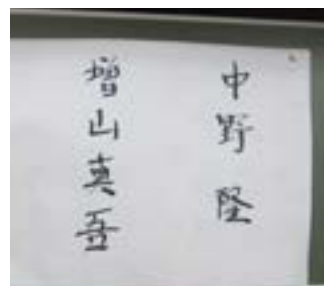 中野隆
増山真吾